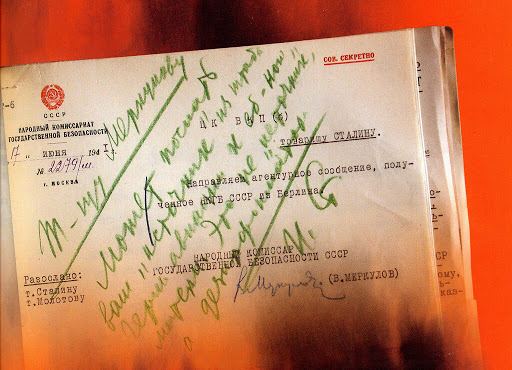 СОВ. СЕКРЕТНО
СССР
НАРОДНЫЙ КОМИССАРИАТ
ГОСУДАРСТВЕННОЙ БЕЗОПАСНОСТИ
17 " июня 1941 г.
№ 2279/м
г. МОСКВА
ЦК ВКП(б)
товарищу СТАЛИНУ.
Направляем агентурное сообщение, полу-
ченное НКГБ СССР из Берлина.
НАРОДНЫЙ КОМИССАР
ГОСУДАРСТВЕННОЙ БЕЗОПАСНОСТИ СССР
(В.МЕРКУЛОВ)
Разослано:
т.Сталину
т.Молотову
Т-щу Меркулову
Может послать
ваш "источник" из штаба
Герм. авиации к еб-ной
матери. Это не "источник",
а дезинформатор.
И. Ст